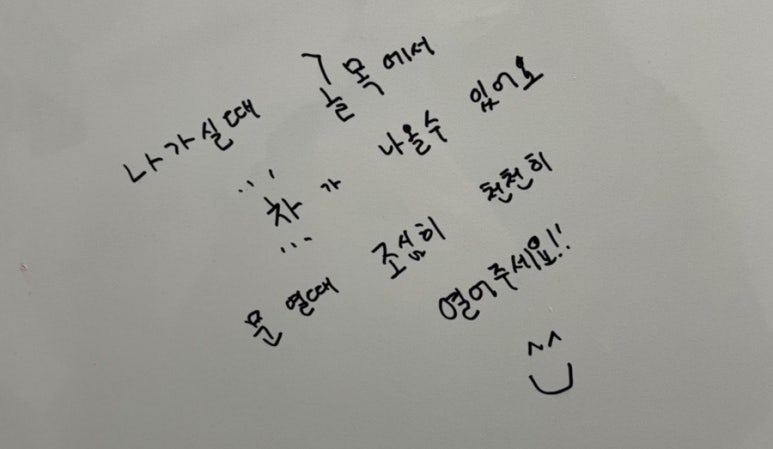 나가실때 골목에서
차가 나올수 있어요
문 열때 조심히 천천히
열어주세요!!
^^